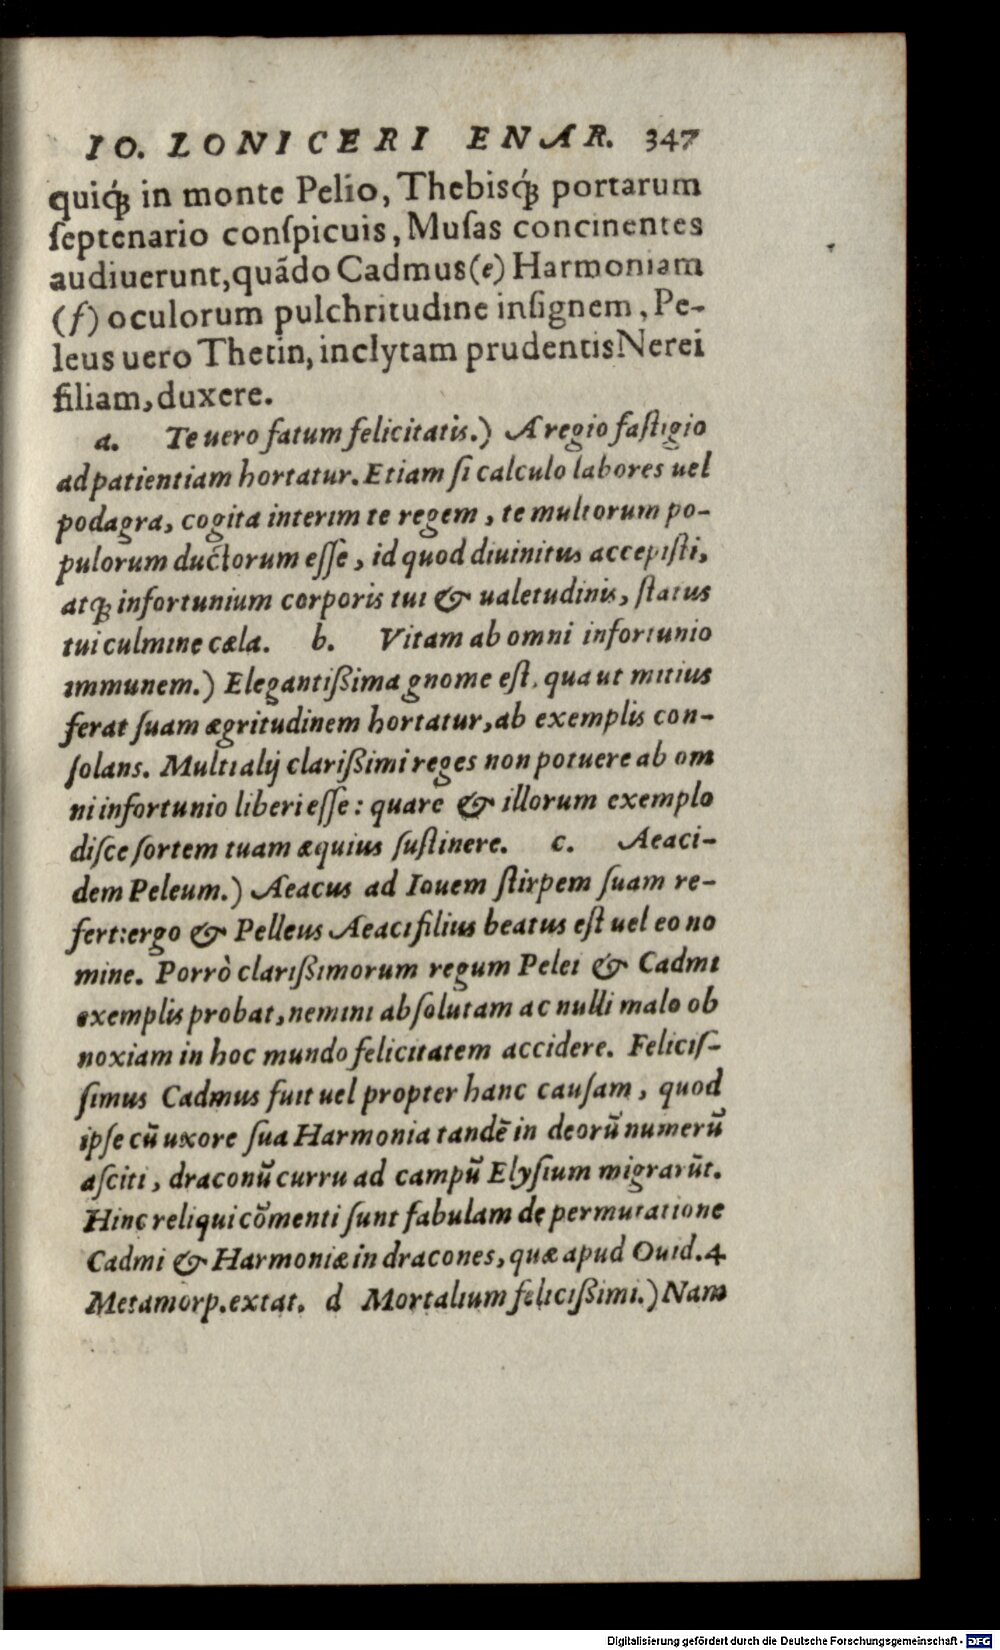 IO. LONICERI ENAR. 347
quiq́ꝫ in monte Pelio, Thebisq́ꝫ portarum
ſeptenario conſpicuis, Muſas concinentes
audiuerunt, quādo Cadmus (e) Harmoniam
(f) oculorum pulchritudine inſignem, Pe-
leus uero Thetin, inclytam prudentis Nerei
filiam, duxere.
a. Te uero fatum felicitatis.) A regio faſtigio
ad patientiam hortatur. Etiam ſi calculo labores uel
podagra, cogita interim te regem, te multorum po-
pulorum ductorum eſſe, id quod diuinitus accepiſti,
atqꝫ infortunium corporis tui & ualetudinis, ſtatus
tui culmine cæla. b. Vitam ab omni infortunio
immunem.) Elegantißima gnome eſt, qua ut mitius
ferat ſuam ægritudinem hortatur, ab exemplis con-
ſolans. Multi alij clarißimi reges non potuere ab om
ni infortunio liberi eſſe: quare & illorum exemplo
diſce ſortem tuam æquius ſuſtinere. c. Aeaci-
dem Peleum.) Aeacus ad Iouem ſtirpem ſuam re-
fert: ergo & Pelleus Aeaci filius beatus eſt uel eo no
mine. Porrò clarißimorum regum Pelei & Cadmi
exemplis probat, nemini abſolutam ac nulli malo ob
noxiam in hoc mundo felicitatem accidere. Feliciſ-
ſimus Cadmus fuit uel propter hanc cauſam, quod
ipſe cū uxore ſua Harmonia tandē in deorū numerū
aſciti, draconū curru ad campū Elyſium migrarūt.
Hinc reliqui cōmenti ſunt fabulam de permutatione
Cadmi & Harmoniæ in dracones, quæ apud Ouid. 4
Metamorp. extat. d Mortalium felicißimi.) Nam
Digitalisierung gefördert durch die Deutsche Forschungsgemeinschaft - DFG